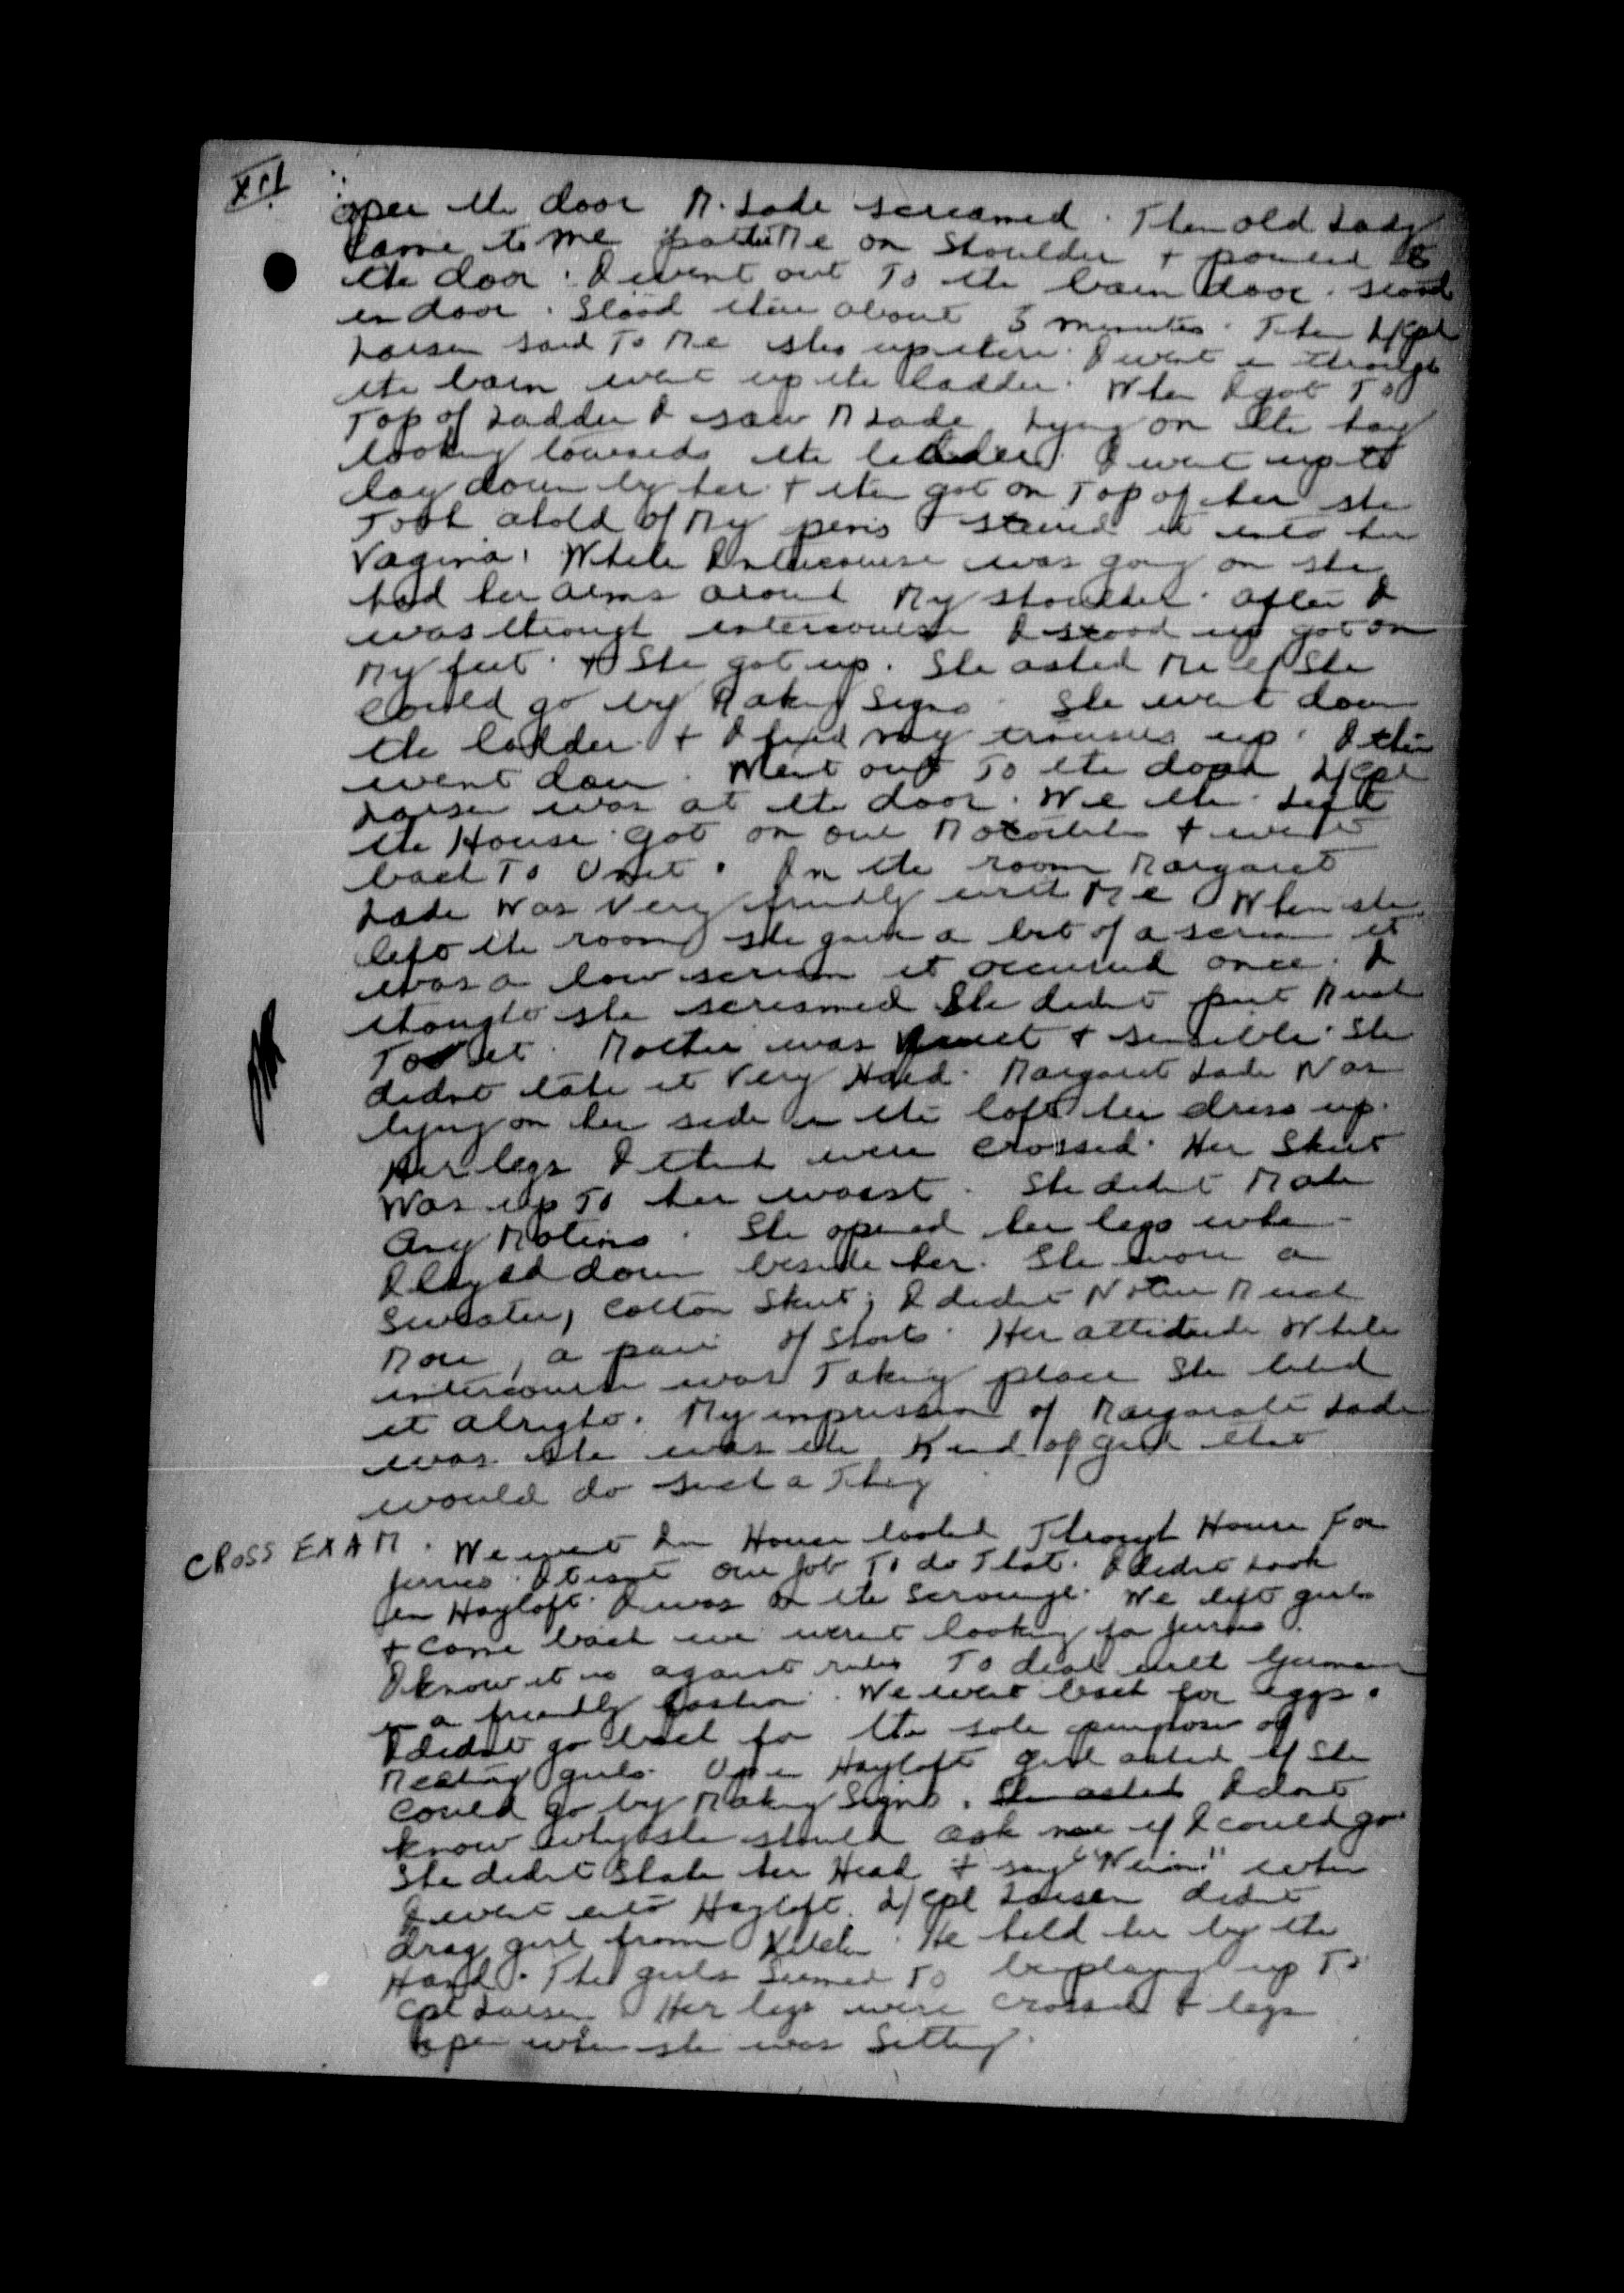 XII
open the door M. Lade screamed. Then old Lady
came to me patted me on shoulder + pointed to
the door. I went out To the barn door. stood
in door. Stood there about 5 minutes. Then L/Cpl
Larsen said To Me shes up there. I went in through
the barn went up the ladder. When I got To
Top of Ladder I saw M Lade Lying on the hay
looking towards the ladder. I went up to
lay down by her + then got on Top of her she
Took ahold of My penis + it into her
Vagina. While Intercourse was going on she
had her arms around My shoulder. After I
was through intercourse I stood up got on
My feet. + She got up. She asked Me if She
could go by Making signs. She went down
the ladder + I fixed my trousers up. I then
went down. Went out To the door L/Cpl
Larsen was at the door. We then left
the House got on our Motorbikes + went
back To Unit. In the room Margaret
Lade Was Very friendly with Me. When she
left the room she gave a bit of a scream it
was a low scream it occurred once. I
thought she screamed She didnt put Much
To it. Mother was quiet + sensible. She
didnt take it Very Hard. Margaret Lade Was
lying on her side in the loft her dress up.
Her legs I think were crossed. Her Skirt
Was up To her waist. She didnt Make
Any Motions. She opened her legs when
I layed down beside her. She wore a
Sweater, Cotton Skirt; I didnt Notice Much
More, a pair of shorts. Her attitude While
intercourse was Taking place She liked
it alright. My impression of Margarate Lade
was she was the Kind of girl that
would do such a Thing
CROSS EXAM. We went In House looked Through House For
Jerries. It isnt our Job To do That. I didnt Look
in Hayloft. I was on the Scrounge. We left girls
+ come back we werent looking for Jerries.
I know it is against rules To deal with Germans
in a friendly fashion. We went back for eggs.
I didnt go back for the sole purpose of
Meeting girls. Up in Hayloft girl asked if She
could go by Making Signs. She asked I dont
know why she should ask me if I could go
She didnt Shake her Head + say "Nein" when
I went into Hayloft. L/Cpl Larsen didnt
drag girl from Kitchen. He held her by the
Hand. The girls seemed To be playing up To
Cpl Larsen. Her legs were crossed + legs
open when she was Sitting.